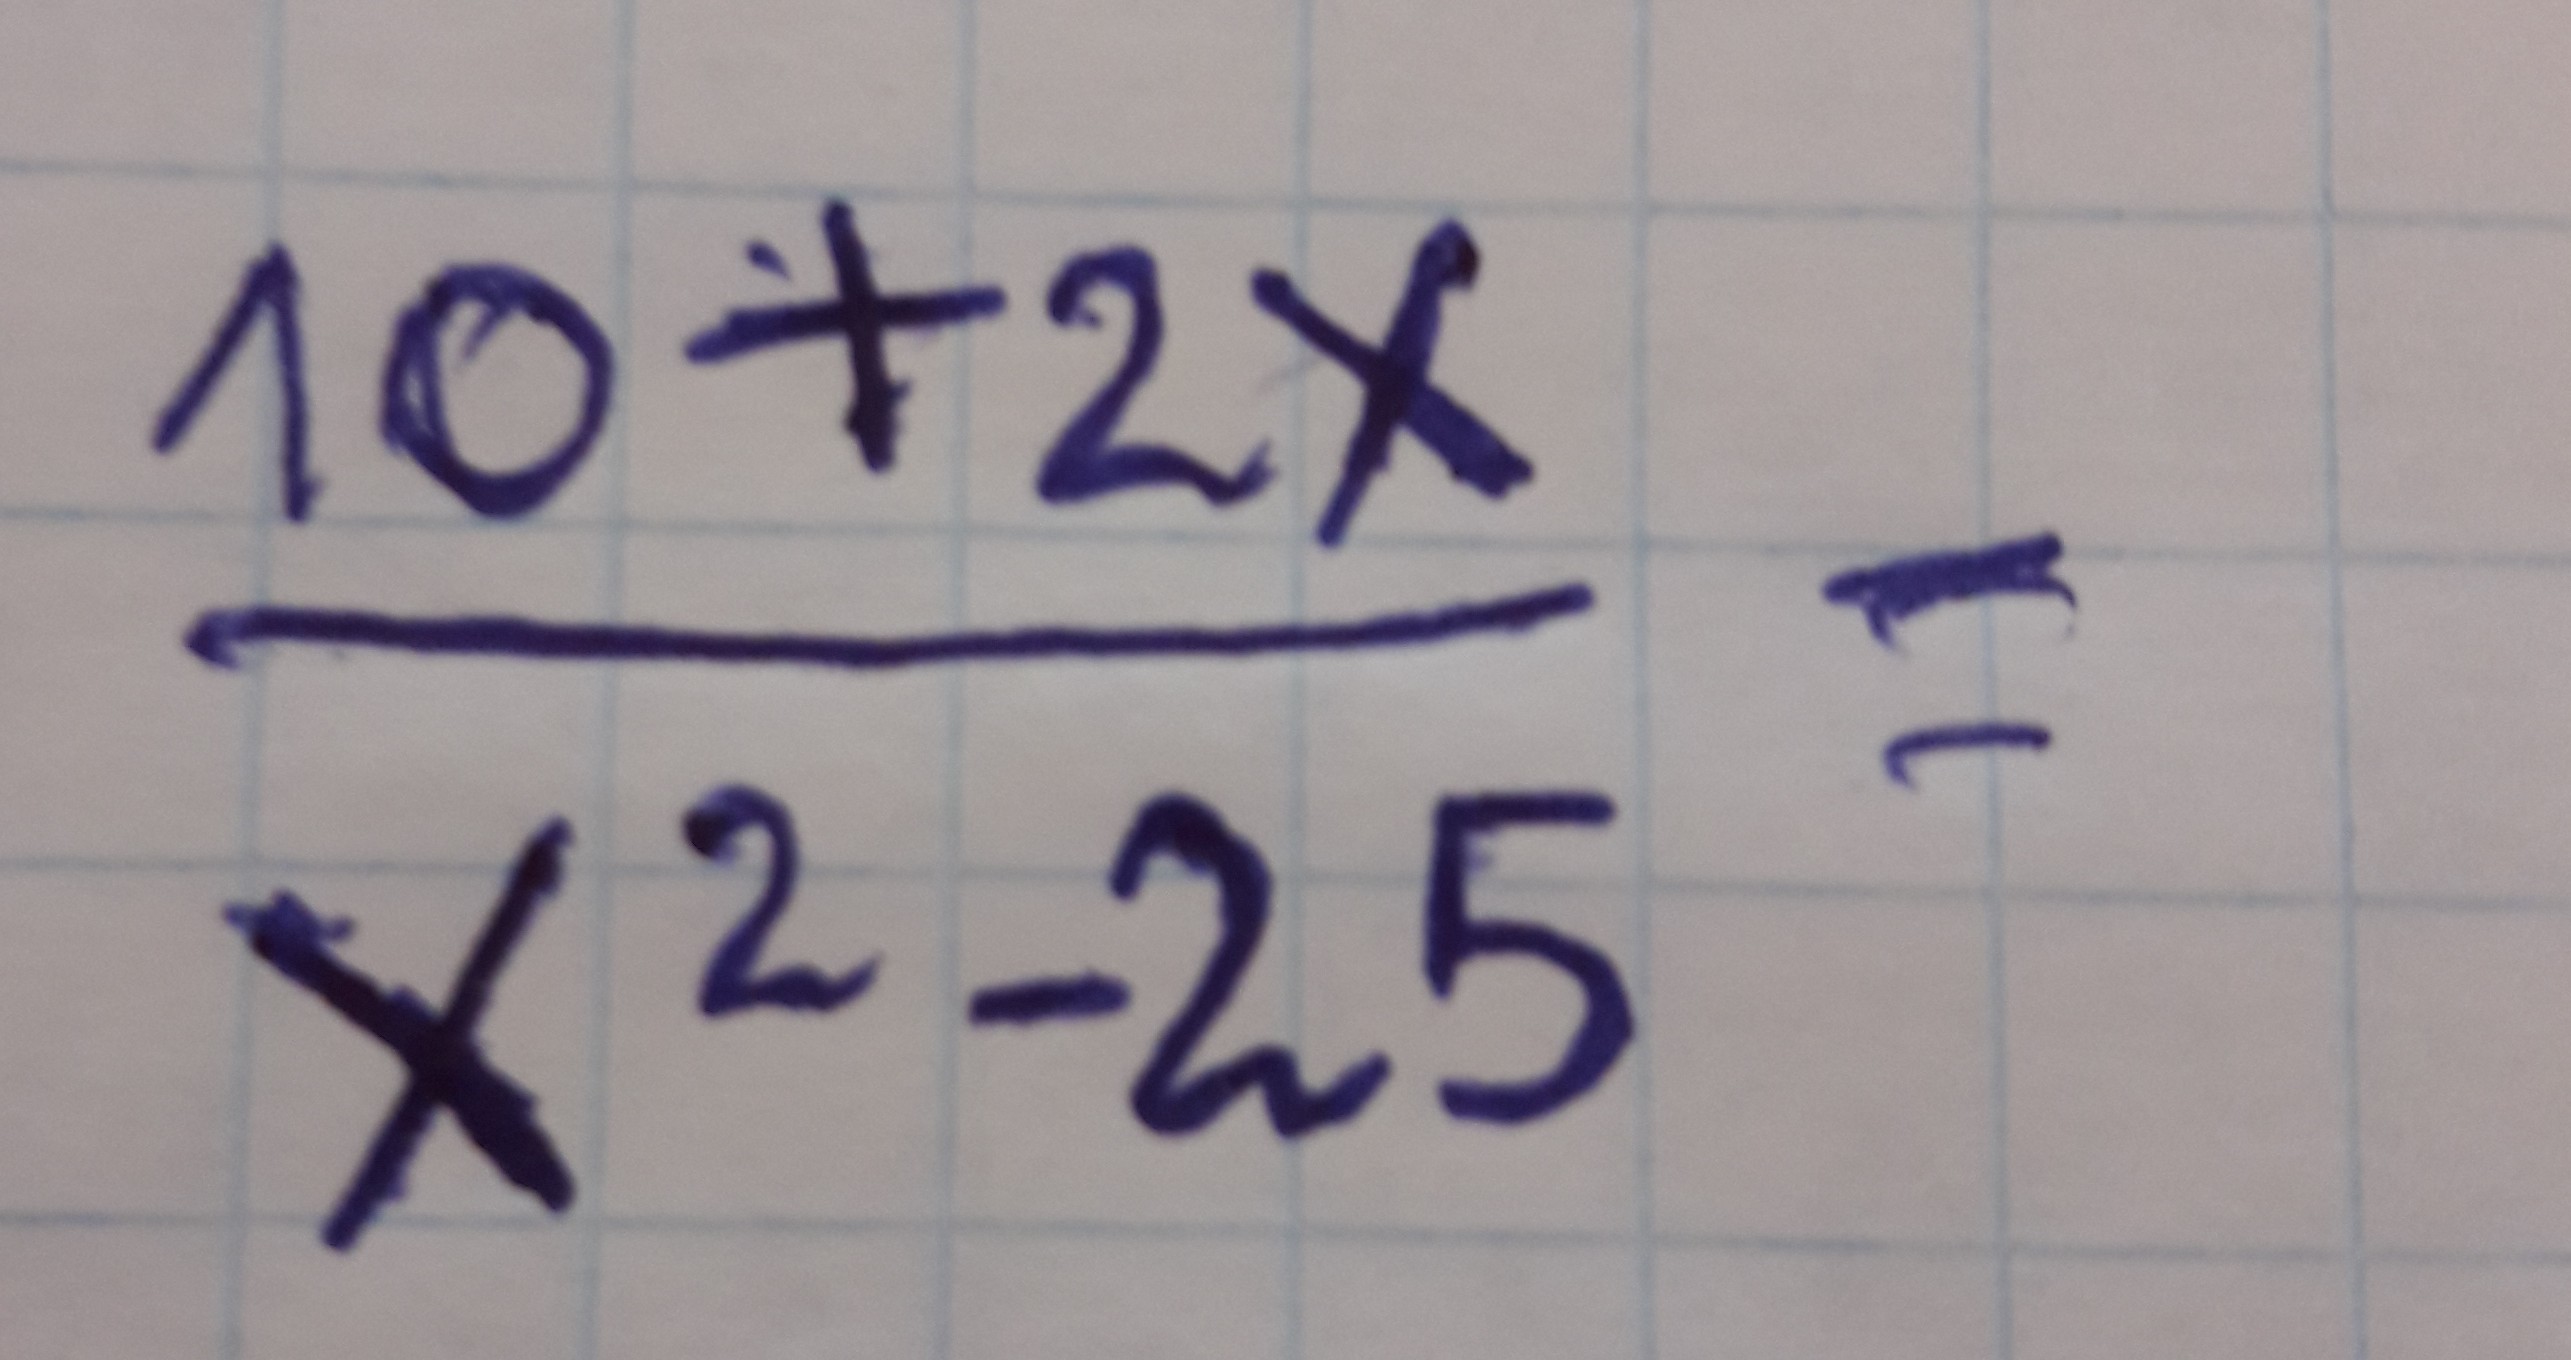 10+2x
=
x²-25